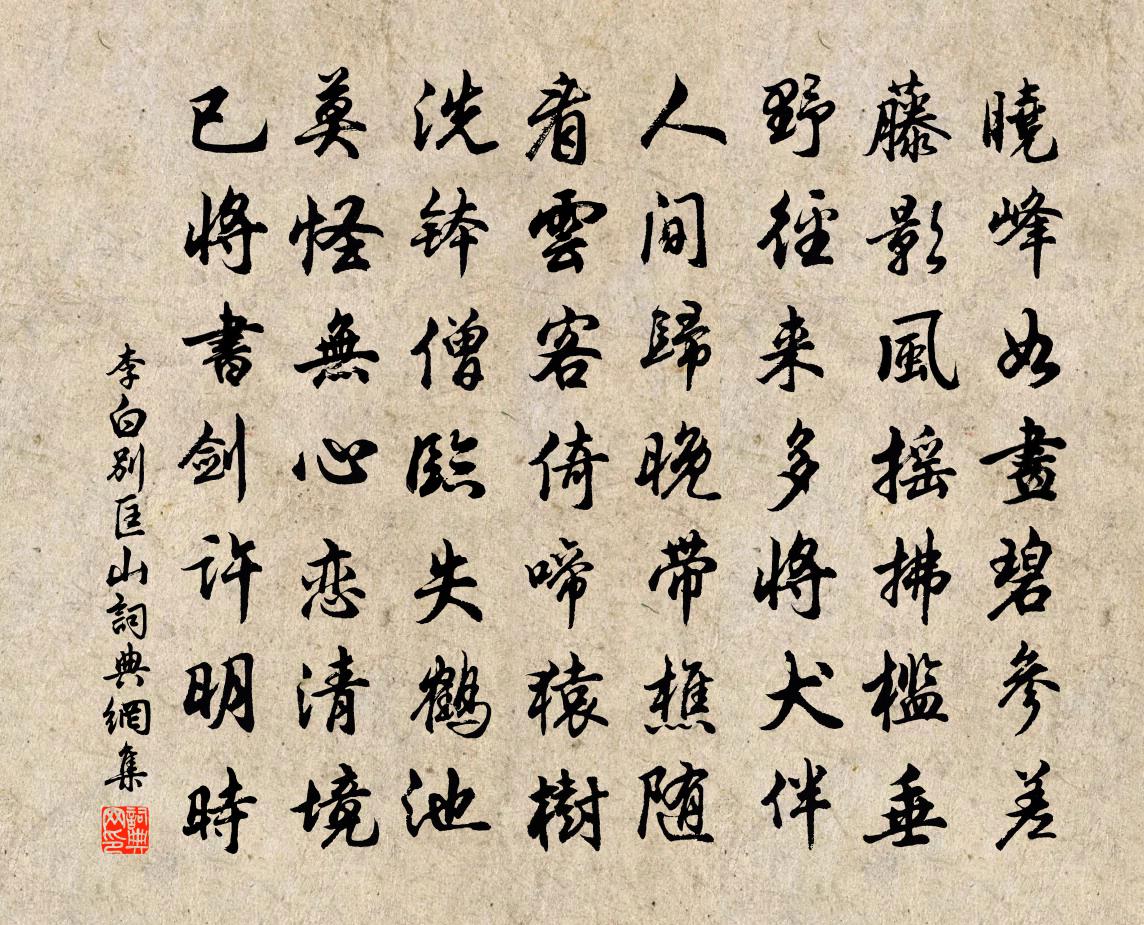 曉峰如畫碧參差
藤影風摇拂檻垂
野徑来多將犬伴
人間歸晚帶樵随
看雲客倚啼猿樹
洗缽僧臨失鶴池
莫怪無心恋清境
已將書劍許明時
李白別匡山詞典網集
詞典网印